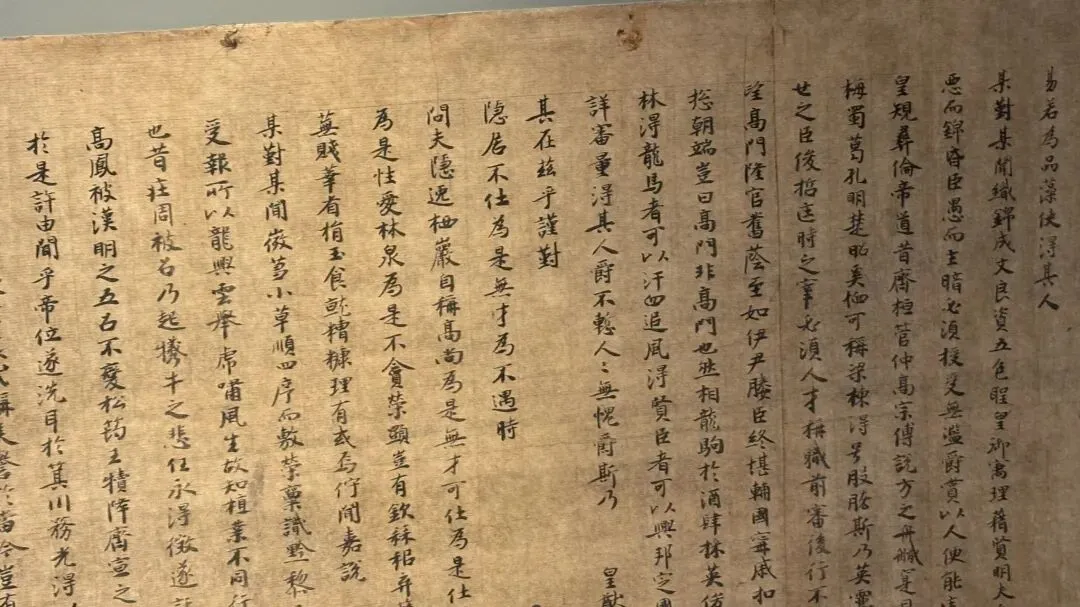 易若為品藻使得其人
某對某聞織錦成文良資五色聖皇御寓理藉賢明大
悪而錦昏臣愚而主暗必須授受無濫爵賞以人使能
皇規彝倫帝道昔齊桓管仲高宗傅説方之舟檝
梅蜀葛孔明楚昭奚恤可稱梁棟得号股肱斯乃英靈
世之臣俊哲匡時之宰必須人才稱職前審後行不
望高門隆官舊蔭至如伊尹媵臣終堪輔國甯戚扣
惣朝端豈曰高門非高門也然相龍駒於酒肆林英
林得龍馬者可以汗四追風得賢臣者可以興邦定國
詳審量得其人爵不𠎝人〻無愧爵斯乃 皇猷
其在兹乎謹對
隱居不仕為是無才為不遇時
問夫隱逸栖巖自稱高尚為是無才可仕為是仕
為是性愛林泉為是不貪榮顯豈有欽
蕪賤華者捐玉食就糟糠理有或焉佇聞嘉説
某對某聞微草小草順四序而敷榮稟識黔黎
受報所以龍興雲舉席嘯風生故知植業不同行
也昔莊周被召乃起犧牛之悲任永得徵遂
高鳳被漢明之五召不變松筠王犢降齊宣之
於是許由聞乎帝位遂洗耳於箕川務光得